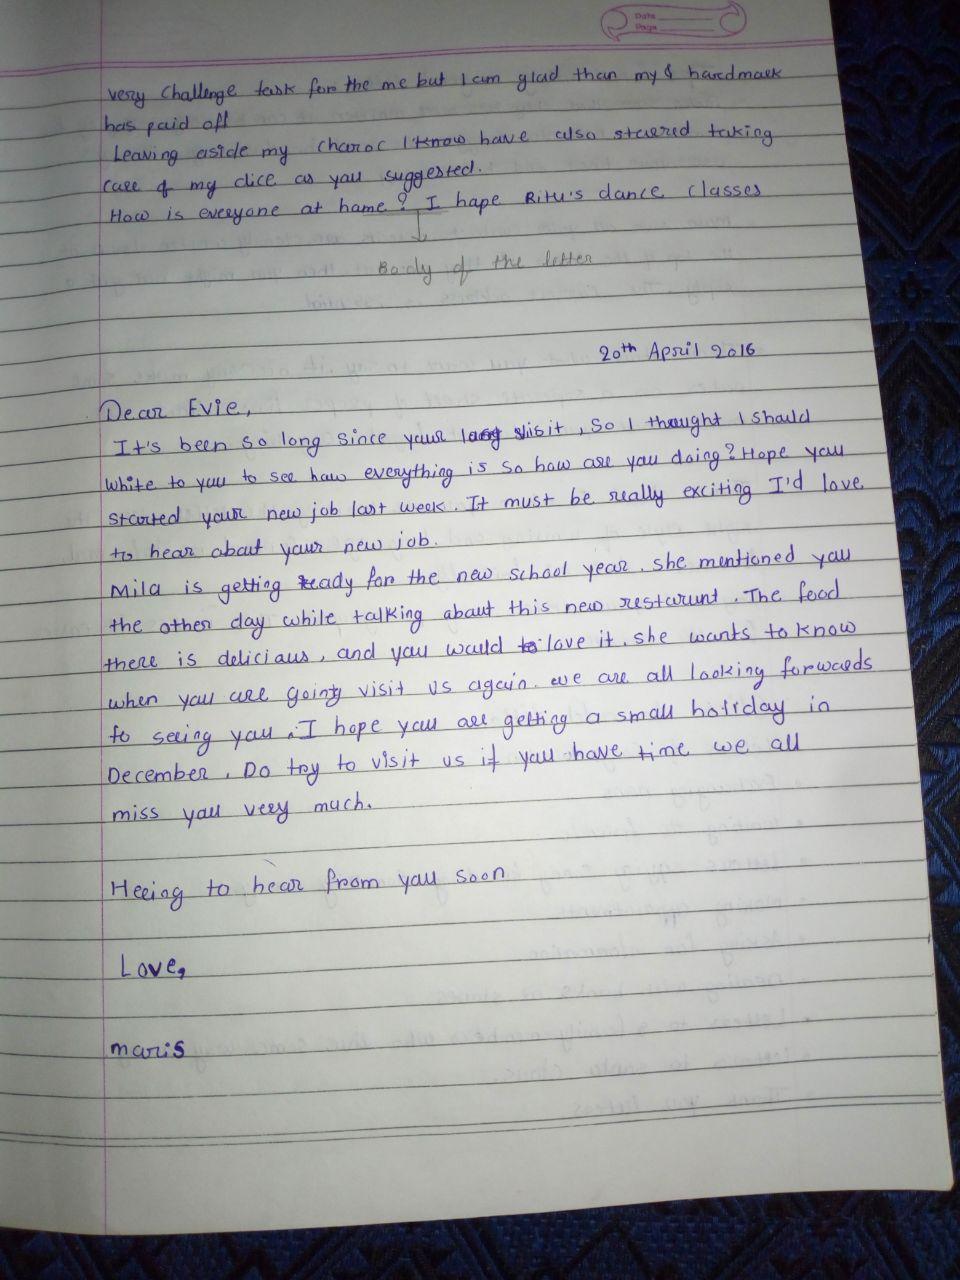 Date
Page
very challenge task for the me but I am glad than my & hardmaek
has paid off
Leaving aside my charoc I know have also started taking
care of my dice as you suggested.
How is everyone at home? I hape Ritu's dance classes
Body of the letter
20th April 2016
Dear Evie,
It's been so long since your last visit, So I thought I should
white to you to see how everything is so how are you doing? Hope you
started your new job last week. It must be really exciting I'd love
to hear about your new job.
Mila is getting ready for the new school year. she mentioned you
the other day while talking about this new resturunt. The food
there is delicious, and you would love it. she wants to know
when you are going visit us again. we are all looking forwards
to seeing you. I hope you are getting a small holiday in
December. Do try to visit us if you have time we all
miss you very much.
Heeing to hear from you soon
Love,
maris